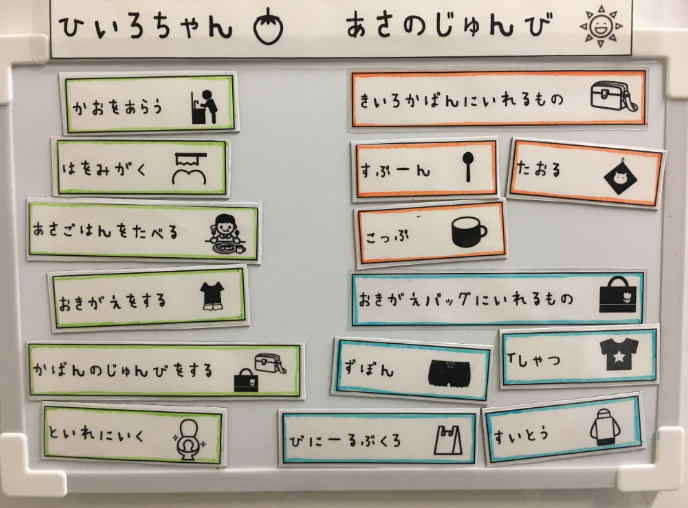 ひいろちゃん あさのじゅんび
かおをあらう
はをみがく
あさごはんをたべる
おきがえをする
かばんのじゅんびをする
といれにいく
きいろかばんにいれるもの
すぷーん
たおる
こっぷ
おきがえバッグにいれるもの
ずぼん
Tしゃつ
びにーるぶくろ
すいとう